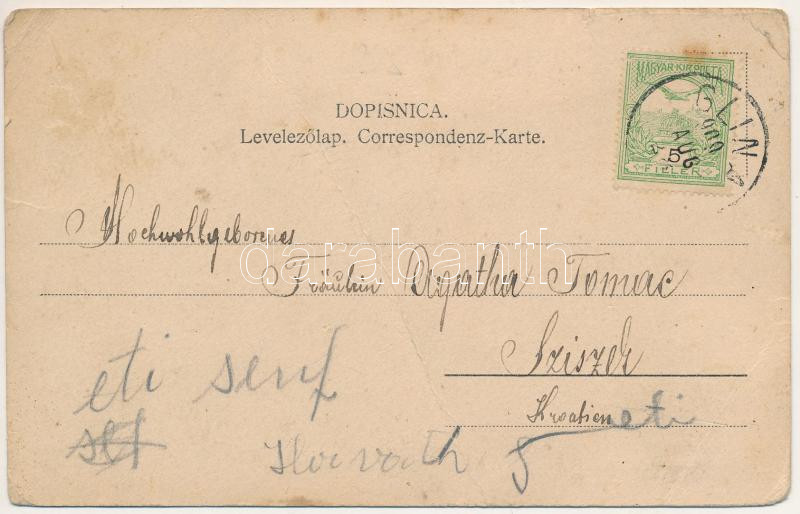 DOPISNICA.
Levelezőlap. Correspondenz-Karte.
MAGYAR KIR. POSTA
5
FILLER
GLINA
909
AUG
Hochwohlgeborenes
Fräulein Agatha Tomac
Sziszek
Kroatien
darabanth
eti senf
eti
Horvath